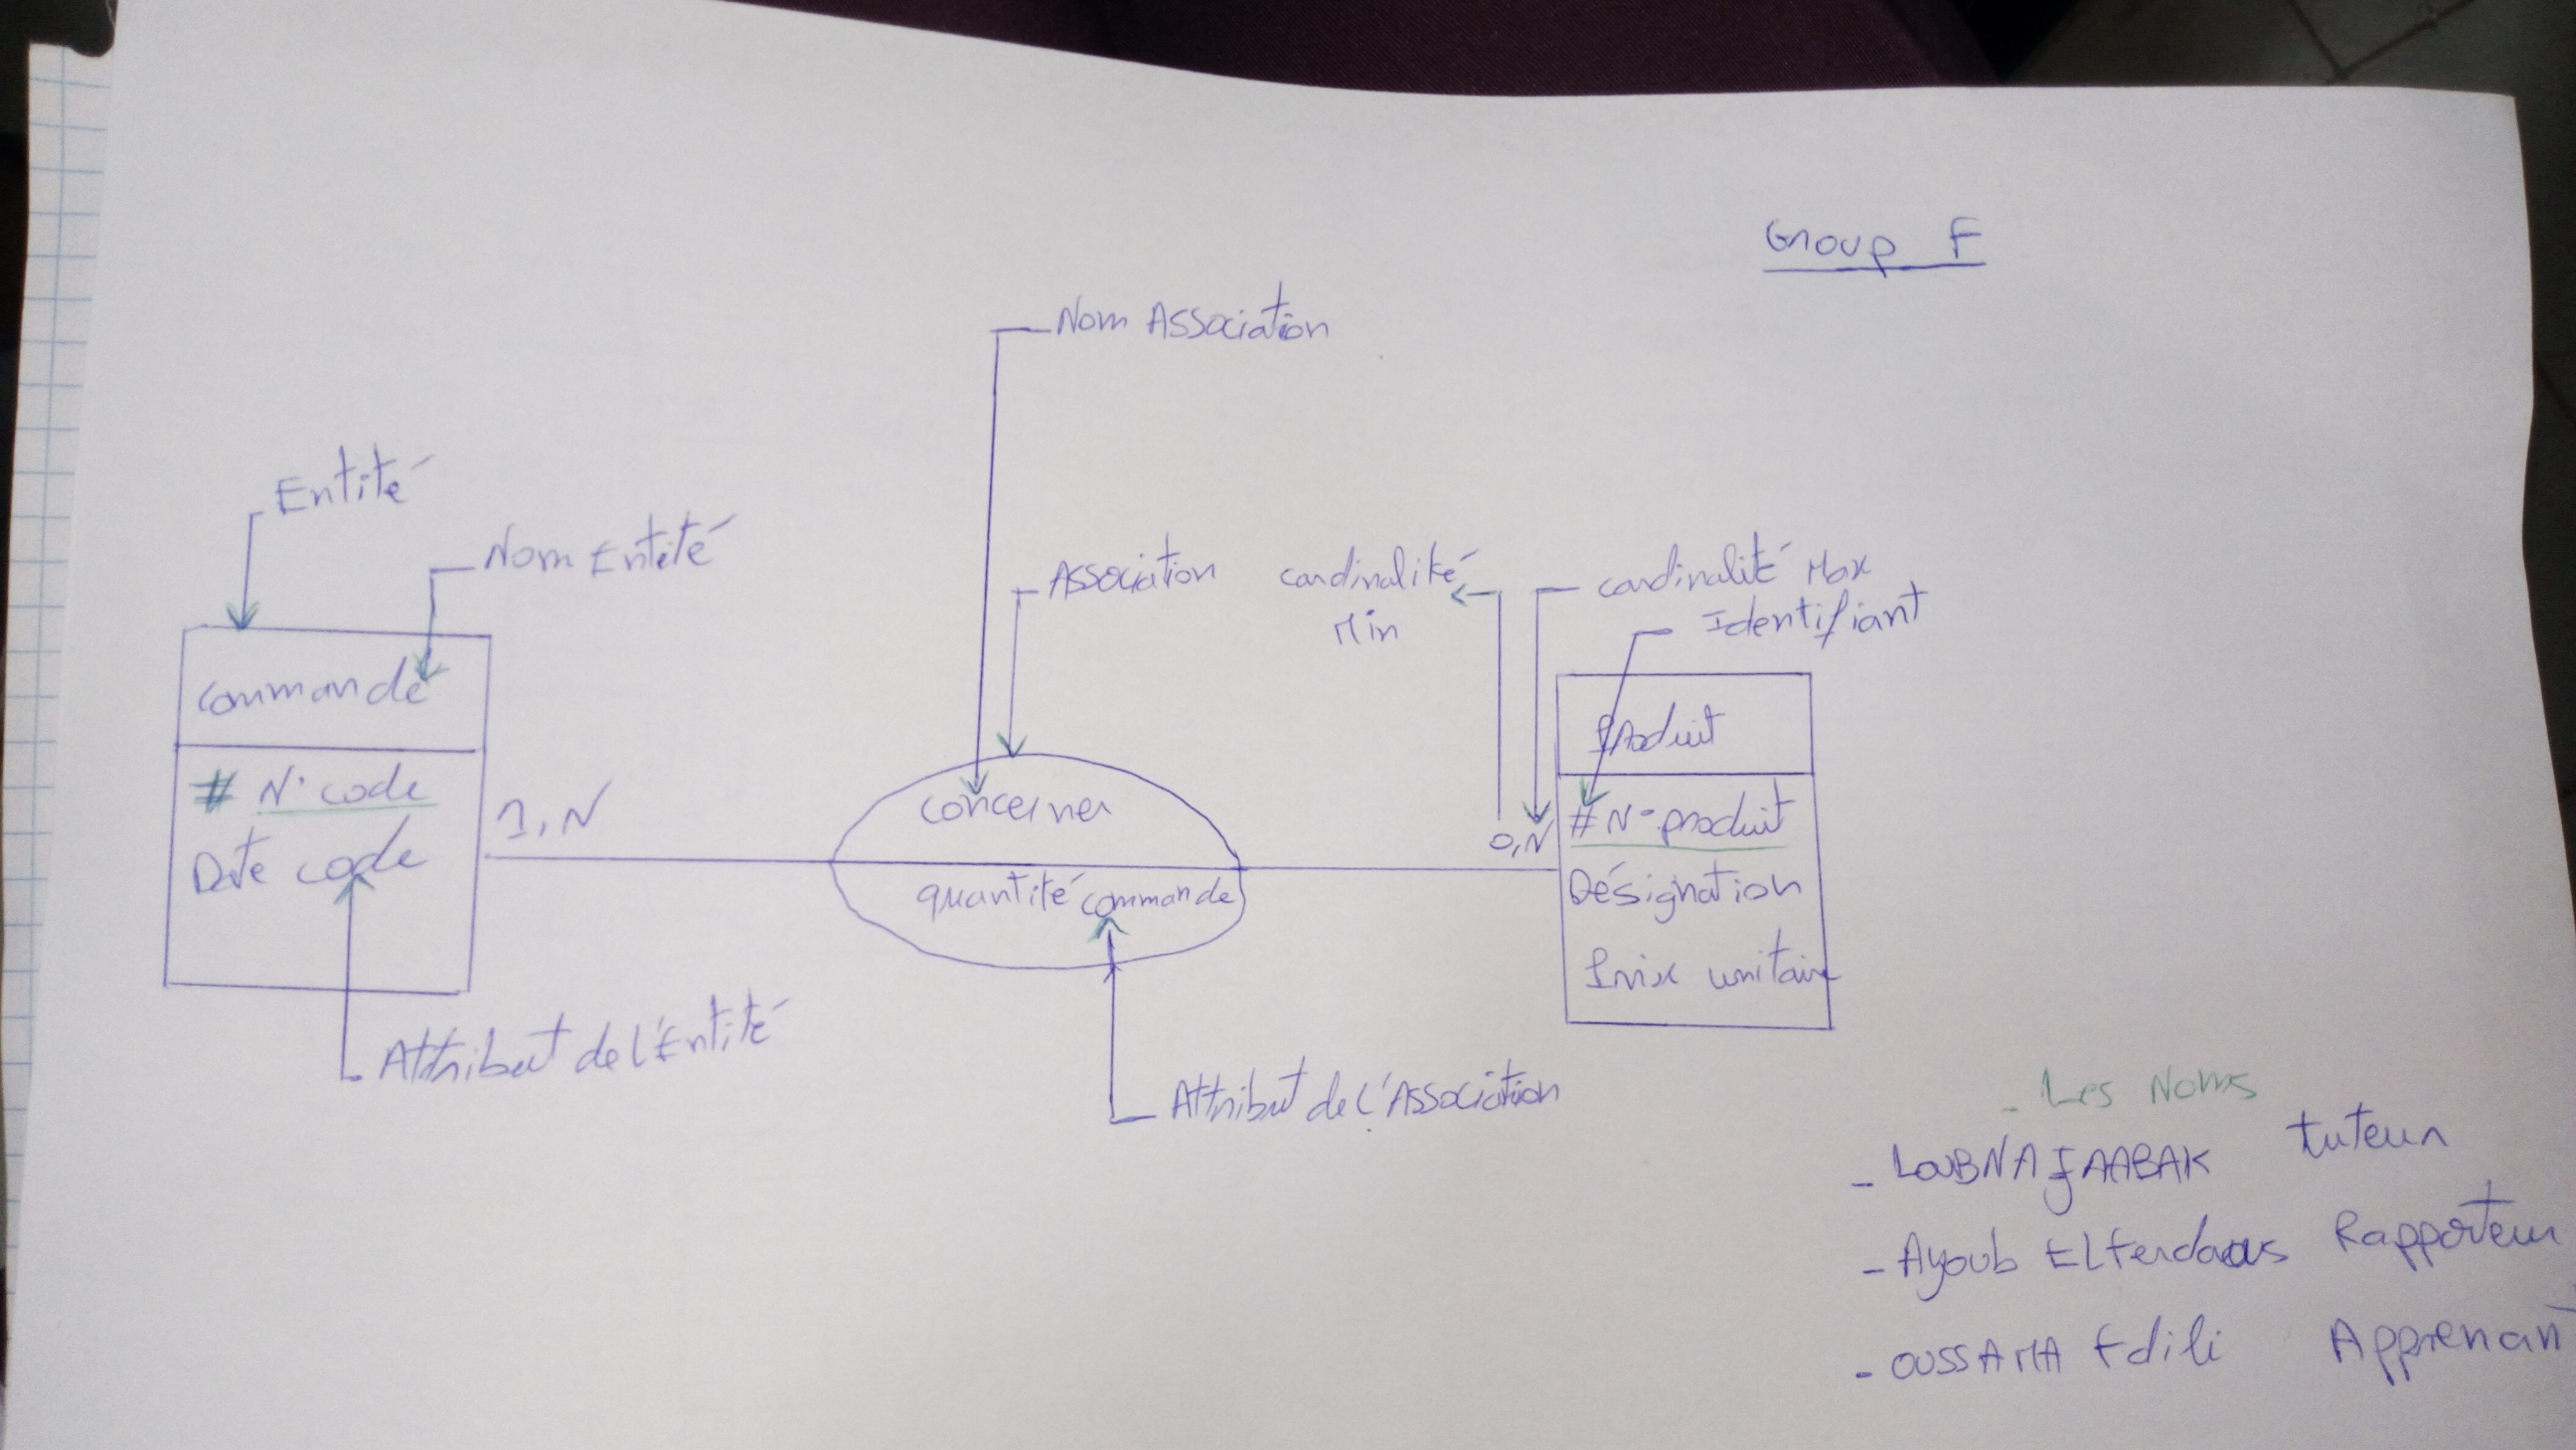 Group F
Nom Association
Entité
Nom Entité
Association
cardinalité
Min
cardinalité Max
Identifiant
commande
# N° code
Date code
1,N
concerner
quantité commande
0,N
Produit
# N° produit
Désignation
Prix unitaire
Attribut de l'Entité
Attribut de l'Association
- Les Noms
- LOUBNA JAABAK tuteur
- Ayoub EL Ferdaous Rapporteur
- OUSSAMA Edili Apprenant